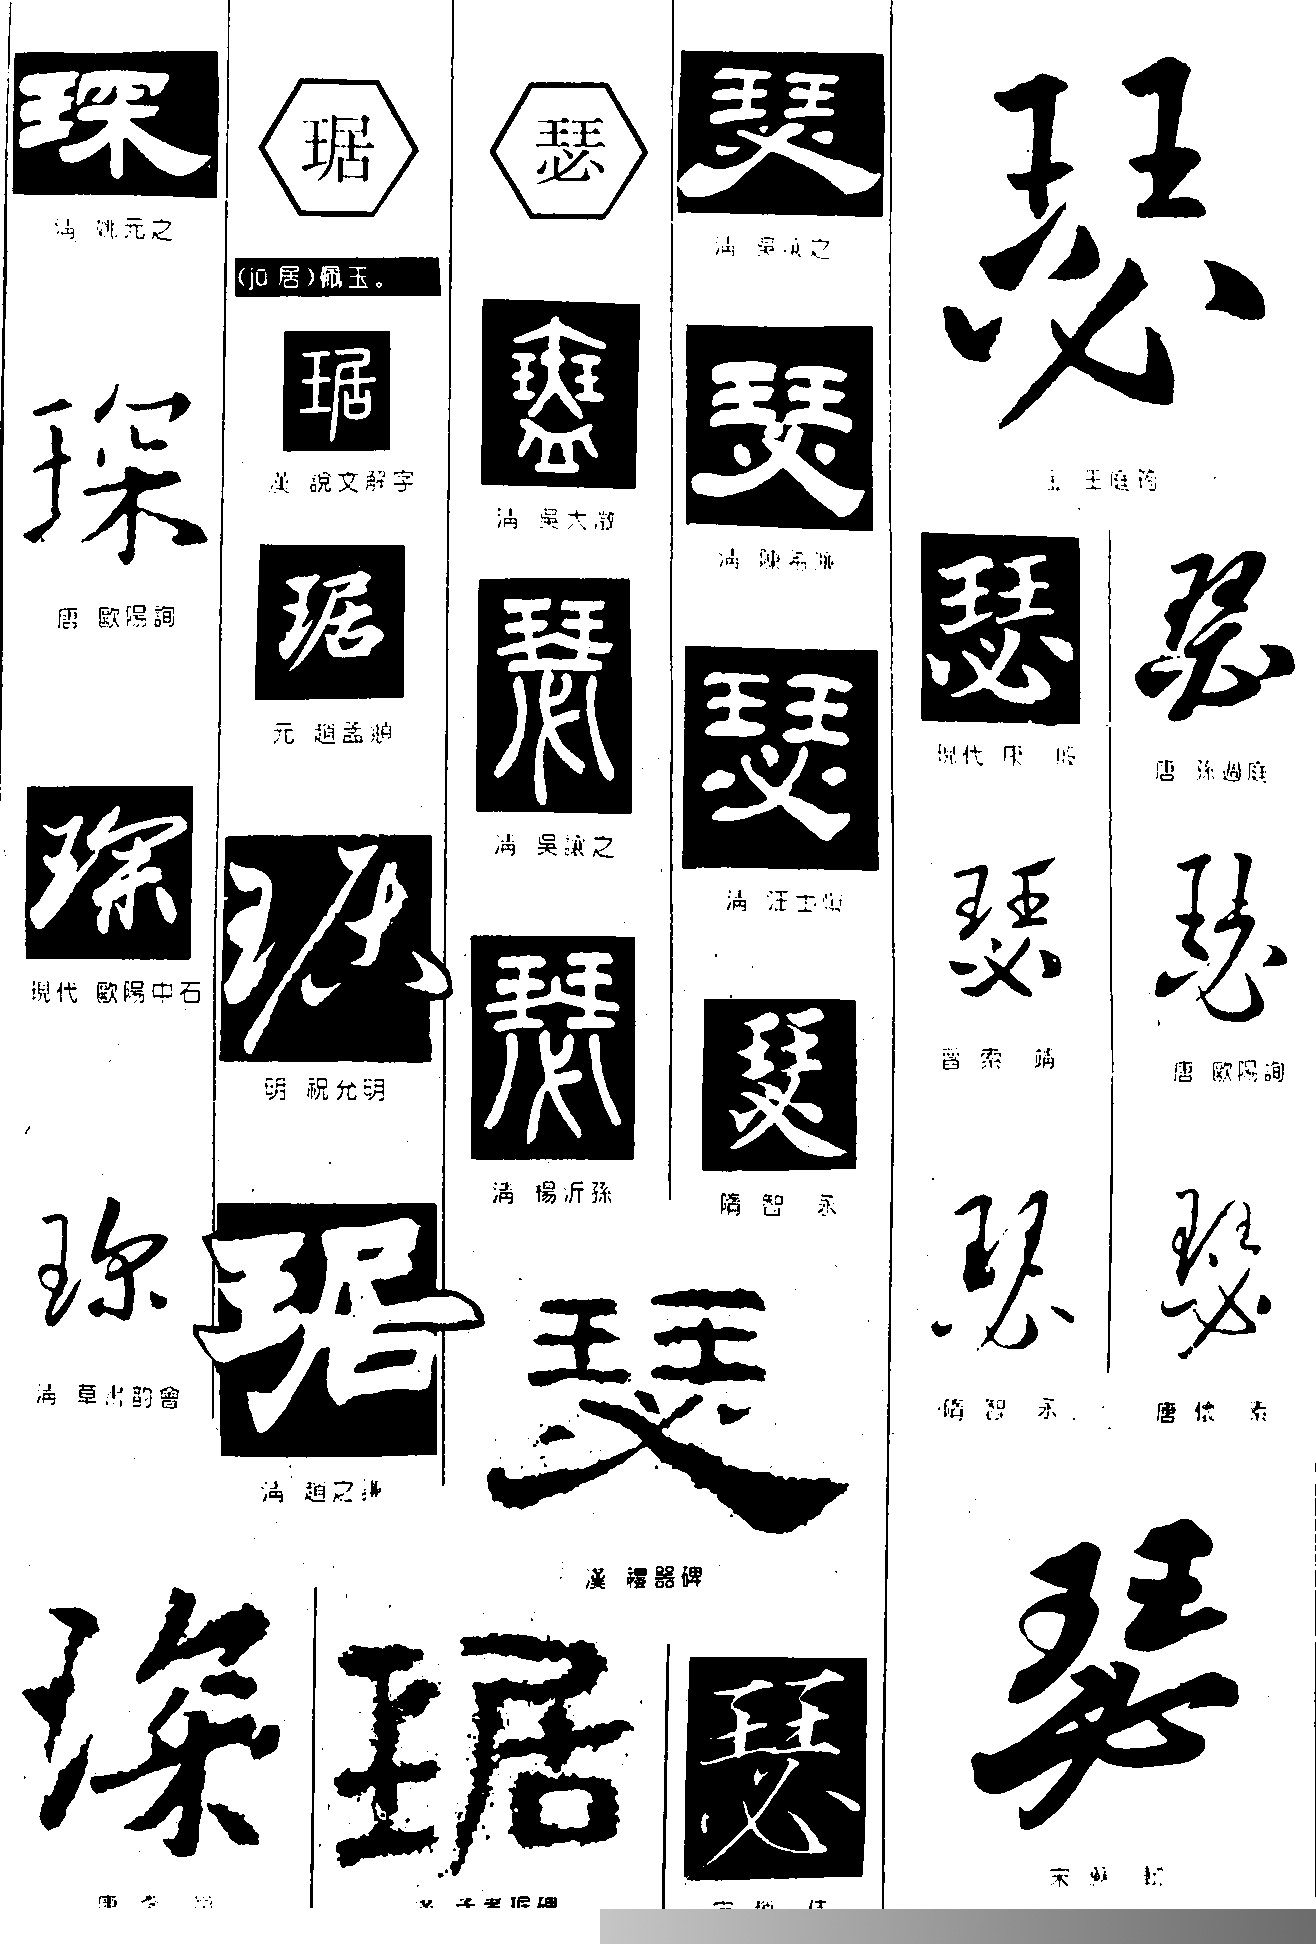 琛
清 姚元之
琛
唐 歐陽詢
琛
現代 歐陽中石
琛
清 草出韵會
琛
琚
(jū 居)佩玉。
琚
漢 說文解字
琚
元 趙孟頫
琚
明 祝允明
琚
清 趙之謙
琚
漢 孔孝琚碑
瑟
瑟
清 吳大澂
瑟
清 吳讓之
瑟
清 楊沂孫
瑟
漢 禮器碑
瑟
清 吳讓之
瑟
瑟
瑟
隋 智 永
瑟
瑟
瑟
現代 康
瑟
唐 孫過庭
瑟
晉 索 靖
瑟
唐 歐陽詢
瑟
隋 智 永
瑟
唐 懷 素
瑟
宋